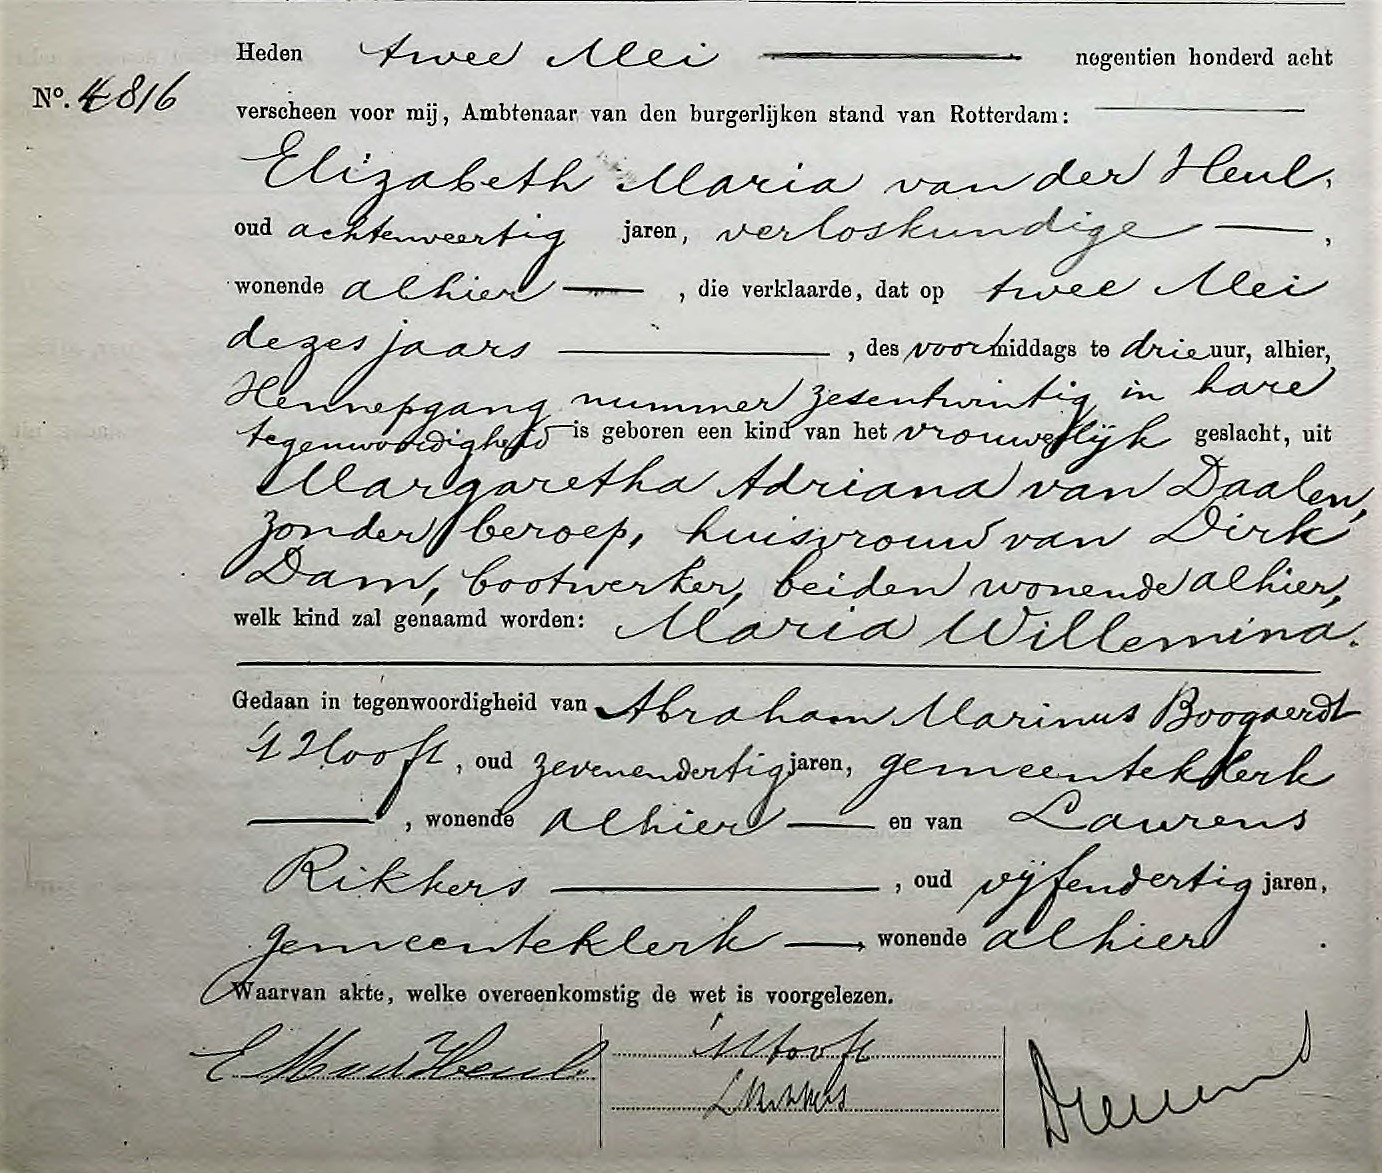 Heden twee Mei nogentien honderd acht
No. 4816
verscheen voor mij, Ambtenaar van den burgerlijken stand van Rotterdam:
Elizabeth Maria van der Heul,
oud achtenveertig jaren, verloskundige,
wonende alhier, die verklaarde, dat op twee Mei
dezes jaars, des voormiddags te drie uur, alhier,
Hennepgang nummer zesentwintig in hare
tegenwoordigheid is geboren een kind van het vrouwelijk geslacht, uit
Margaretha Adriana van Daalen,
zonder beroep, huisvrouw van Dirk
Dam, bootwerker, beiden wonende alhier,
welk kind zal genaamd worden: Maria Willemina.
Gedaan in tegenwoordigheid van Abraham Marinus Boogaerdt
't Hooft, oud zevenendertig jaren, gemeenteklerk
, wonende alhier en van Laurens
Rikkers, oud vijfendertig jaren,
gemeenteklerk, wonende alhier.
Waarvan akte, welke overeenkomstig de wet is voorgelezen.
E M van d Heul
't Hooft
L Rikkers